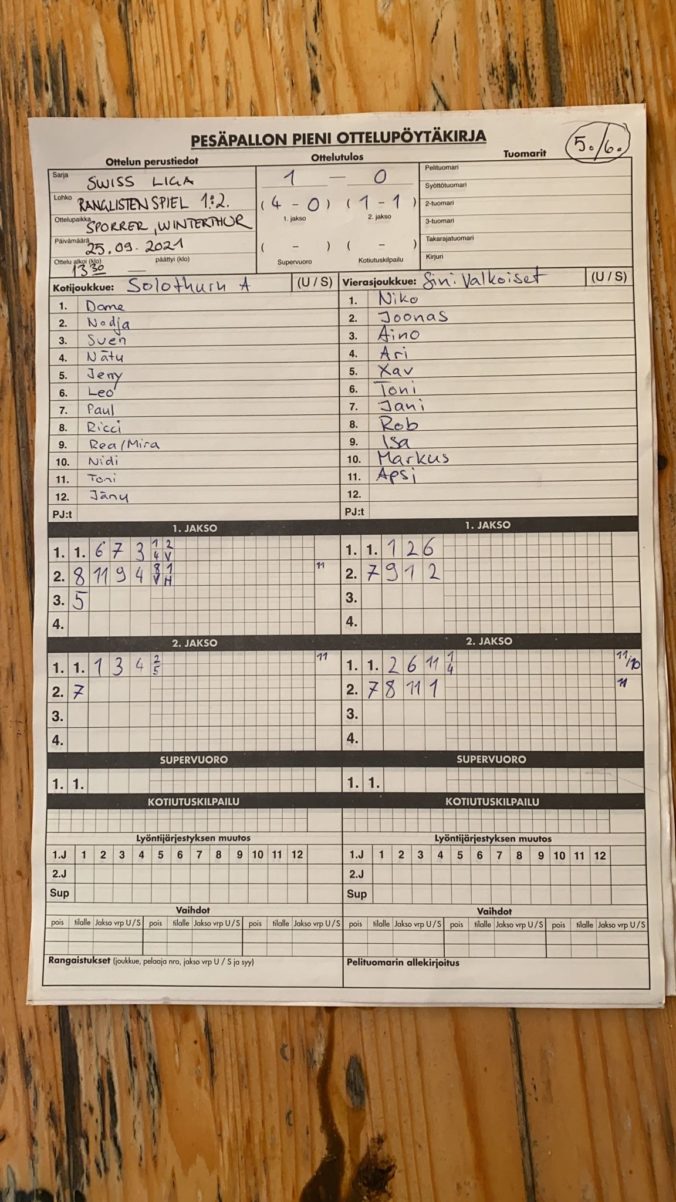 PESÄPALLON PIENI OTTELUPÖYTÄKIRJA
5./6.
Ottelun perustiedot Ottelutulos Tuomarit
Sarja SWISS LIGA
Lohko RANGLISTENSPIEL 1:2.
Ottelupaikka SPORRER, WINTERTHUR
Päivämäärä 25.09.2021
Ottelu alkoi (klo) 13 30 — päättyi (klo)
1 — 0
( 4 - 0 ) ( 1 - 1 )
1. jakso 2. jakso
( - ) ( - )
Supervuoro Kotiutuskilpailu
Pelituomari
Syöttötuomari
2-tuomari
3-tuomari
Takarajatuomari
Kirjuri
Kotijoukkue: Solothurn A (U / S)
1. Dome
2. Nadja
3. Sven
4. Nätu
5. Jeny
6. Leo
7. Paul
8. Ricci
9. Rea/Mira
10. Nidi
11. Toni
12. Jänu
PJ:t
Vierasjoukkue: Sini Valkoiset (U / S)
1. Niko
2. Joonas
3. Aino
4. Ari
5. Xav
6. Toni
7. Jani
8. Rob
9. Isa
10. Markus
11. Apsi
12.
PJ:t
1. JAKSO 1. JAKSO
1. 1. 6 7 3 1/4 2/V
2. 8 11 9 4 8/V 1/H 11
3. 5
4.
1. 1. 1 2 6
2. 7 9 1 2
3.
4.
2. JAKSO 2. JAKSO
1. 1. 1 3 4 2/5 11
2. 7
3.
4.
1. 1. 2 6 11 1/4 11/10
2. 7 8 11 1 11
3.
4.
SUPERVUORO SUPERVUORO
1. 1. 1. 1.
KOTIUTUSKILPAILU KOTIUTUSKILPAILU
Lyöntijärjestyksen muutos Lyöntijärjestyksen muutos
1.J 1 2 3 4 5 6 7 8 9 10 11 12 1.J 1 2 3 4 5 6 7 8 9 10 11 12
2.J 2.J
Sup Sup
Vaihdot Vaihdot
pois tilalle Jakso vrp U / S pois tilalle Jakso vrp U / S pois tilalle Jakso vrp U / S pois tilalle Jakso vrp U / S pois tilalle Jakso vrp U / S pois tilalle Jakso vrp U / S
Rangaistukset (joukkue, pelaaja nro, jakso vrp U / S ja syy) Pelituomarin allekirjoitus